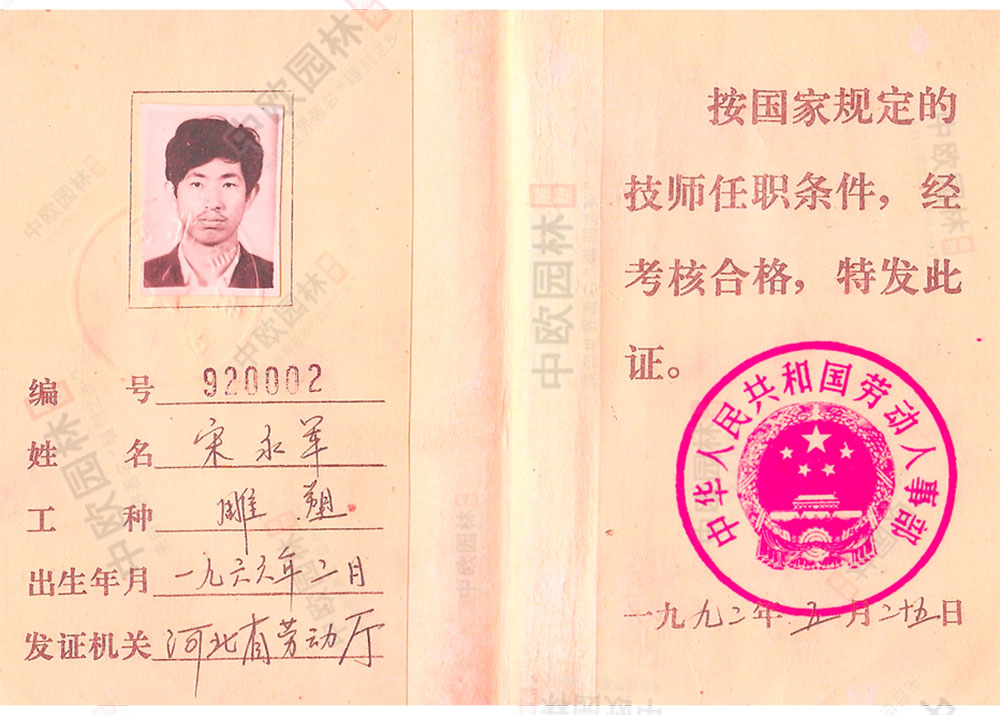 编号 920002
姓名 宋永军
工种 雕塑
出生年月 一九六六年二月
发证机关 河北省劳动厅
按国家规定的
技师任职条件，经
考核合格，特发此
证。
中华人民共和国劳动人事部
一九九二年五月二十五日
中欧园林